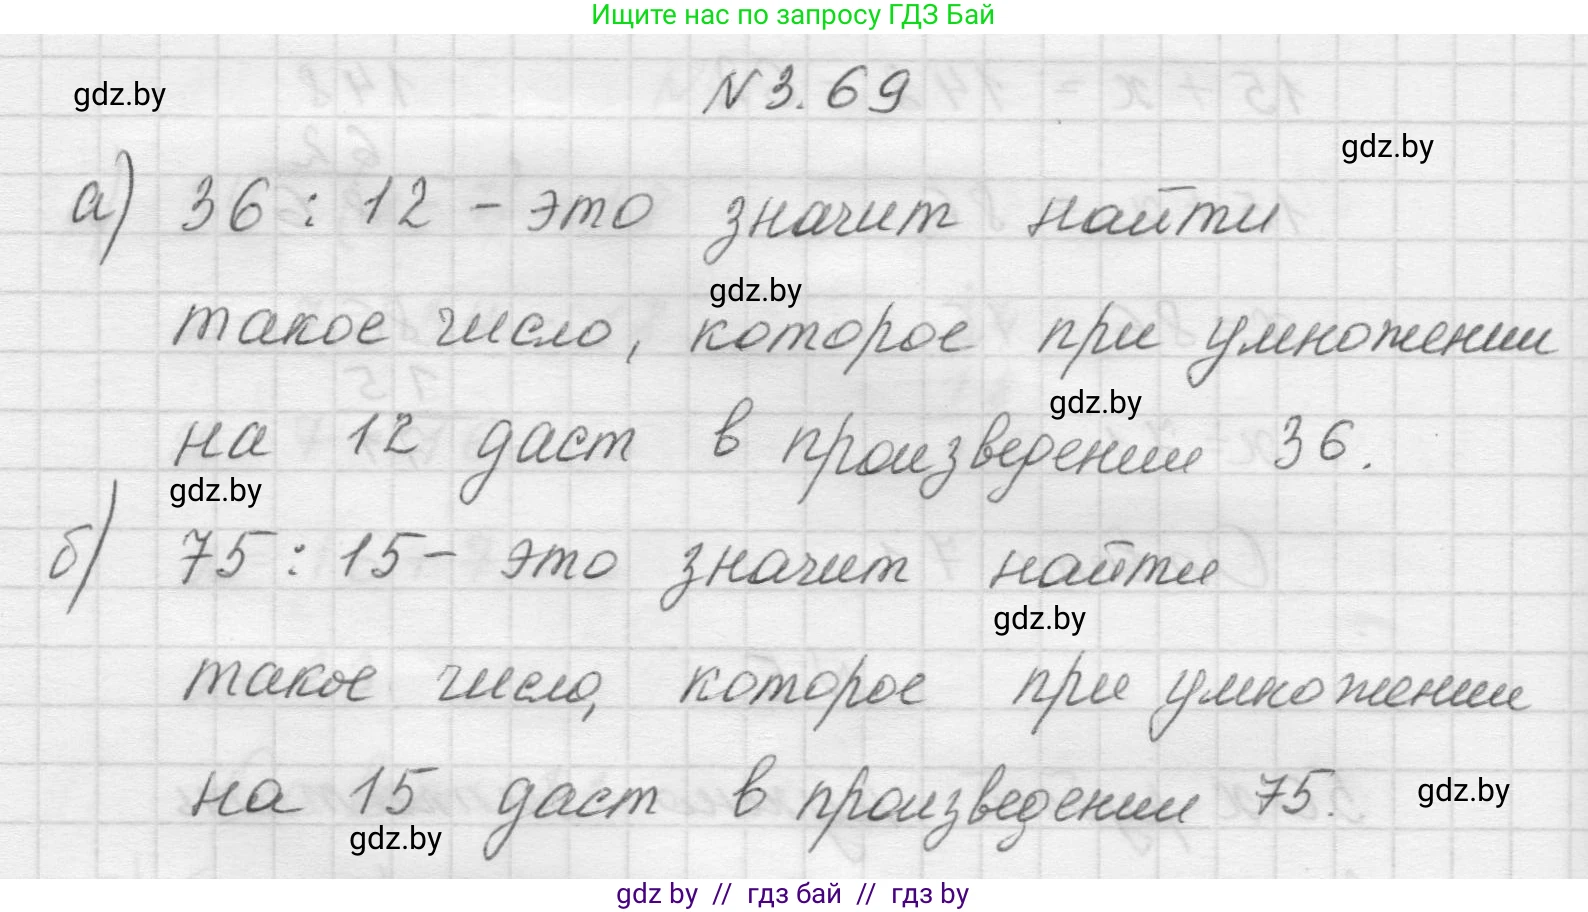 Ищите нас по запросу ГДЗ Бай
№3.69
gdz.by
gdz.by
а) 36 : 12 - это значит найти
gdz.by
такое число, которое при умножении
gdz.by
на 12 даст в произведении 36.
gdz.by
б) 75 : 15 - это значит найти
gdz.by
такое число, которое при умножении
на 15 даст в произведении 75.
gdz.by
gdz.by
gdz by // гдз бай // гдз by